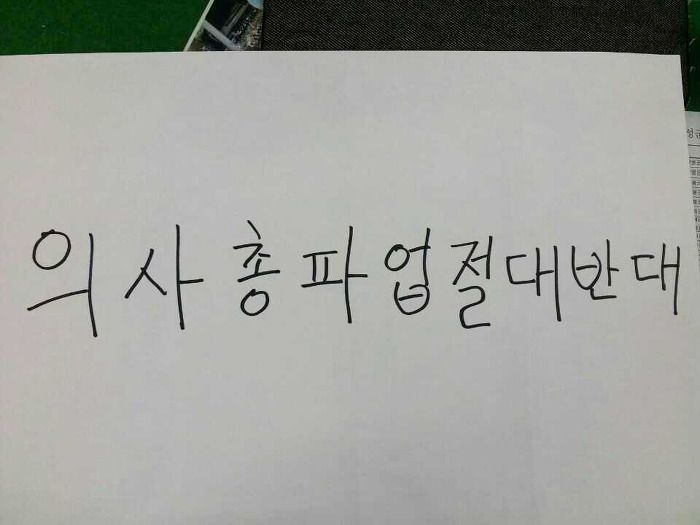 의사총파업절대반대